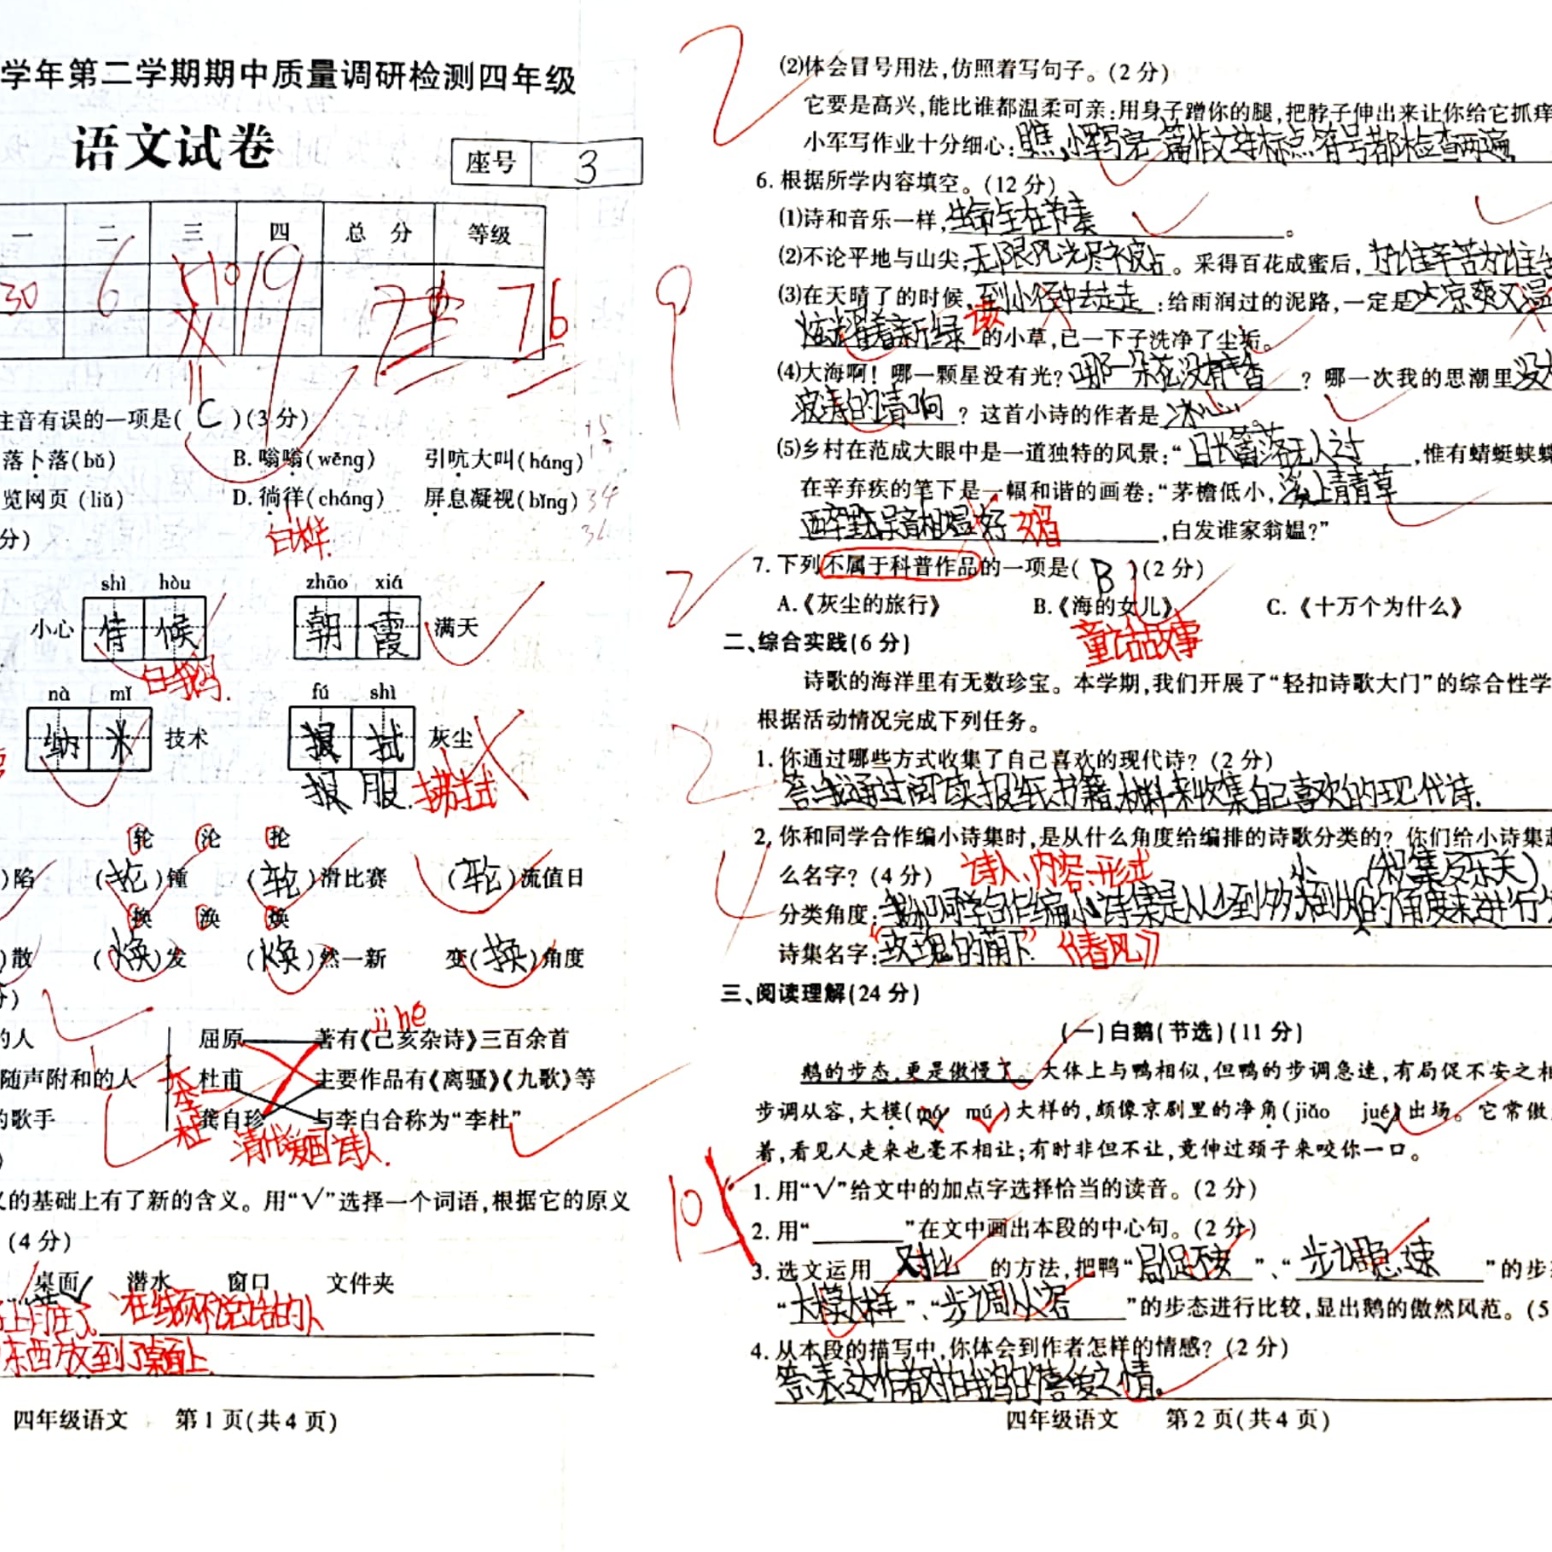 学年第二学期期中质量调研检测四年级
语文试卷
座号 3
一 二 三 四 总分 等级
30 6 10 19 76
注音有误的一项是( C )(3分)
落卜落(bǔ) B.嗡嗡(wēng) 引吭大叫(háng)
览网页(liǔ) D.徜徉(cháng) 屏息凝视(bǐng)
分)
白桦
shì hòu zhāo xiá
小心 侍候 朝霞 满天
白鹅
nà mǐ fú shì
纳米 技术 拭 灰尘
报 服 拂拭
轮 沦 抡
)陷 ( )锤 ( )滑比赛 (轮)流值日
换 涣 焕
)散 (焕)发 (焕)然一新 变(换)角度
分)
jǐ hé
的人 屈原 著有《己亥杂诗》三百余首
随声附和的人 杜甫 主要作品有《离骚》《九歌》等
的歌手 龚自珍 与李白合称为“李杜”
李杜
清代爱国诗人.
)
义的基础上有了新的含义。用“√”选择一个词语,根据它的原义
(4分)
桌面√ 潜水 窗口 文件夹
在线而不说话的人
东西放到了桌面上.
四年级语文 第1页(共4页)
2
(2)体会冒号用法,仿照着写句子。(2分)
它要是高兴,能比谁都温柔可亲:用身子蹭你的腿,把脖子伸出来让你给它抓痒
小军写作业十分细心:瞧,小军写完一篇作文连标点符号都检查两遍
6.根据所学内容填空。(12分)
(1)诗和音乐一样,生命全在节奏。
9
(2)不论平地与山尖,无限风光尽被占。采得百花成蜜后,为谁辛苦为谁
(3)在天晴了的时候,到小径中去走走:给雨润过的泥路,一定是 凉爽又温
炫耀着新绿的小草,已一下子洗净了尘垢。
(4)大海啊!哪一颗星没有光?哪一朵花没有香?哪一次我的思潮里没
波涛的清响?这首小诗的作者是冰心。
(5)乡村在范成大眼中是一道独特的风景:“日长篱落无人过,惟有蜻蜓蛱蝶
在辛弃疾的笔下是一幅和谐的画卷:“茅檐低小,溪上青青草
吴音相 好 媚,白发谁家翁媪?”
2
7.下列不属于科普作品的一项是( B )(2分)
A.《灰尘的旅行》 B.《海的女儿》 C.《十万个为什么》
童话故事
二、综合实践(6分)
诗歌的海洋里有无数珍宝。本学期,我们开展了“轻扣诗歌大门”的综合性学
根据活动情况完成下列任务。
2
1.你通过哪些方式收集了自己喜欢的现代诗?(2分)
答:我通过阅读报纸、书籍、材料来收集自己喜欢的现代诗.
2.你和同学合作编小诗集时,是从什么角度给编排的诗歌分类的?你们给小诗集起
4
么名字?(4分) 诗人、内容、形式
分类角度:我和同学合作编小诗集是从 的角度来进行
诗集名字:“玫瑰的 下” 《春风》
三、阅读理解(24分)
(一)白鹅(节选)(11分)
鹅的步态,更是傲慢了。大体上与鸭相似,但鸭的步调急速,有局促不安之相
步调从容,大模(mó mú)大样的,颇像京剧里的净角(jiǎo jué)出场。它常傲
着,看见人走来也毫不相让;有时非但不让,竟伸过颈子来咬你一口。
10
1.用“√”给文中的加点字选择恰当的读音。(2分)
2.用“______”在文中画出本段的中心句。(2分)
3.选文运用 对比 的方法,把鸭“局促不安”、“步调急速”的步态
“大模大样”、“步调从容”的步态进行比较,显出鹅的傲然风范。(5
4.从本段的描写中,你体会到作者怎样的情感?(2分)
答:表达作者对白鹅的喜爱之情。
四年级语文 第2页(共4页)